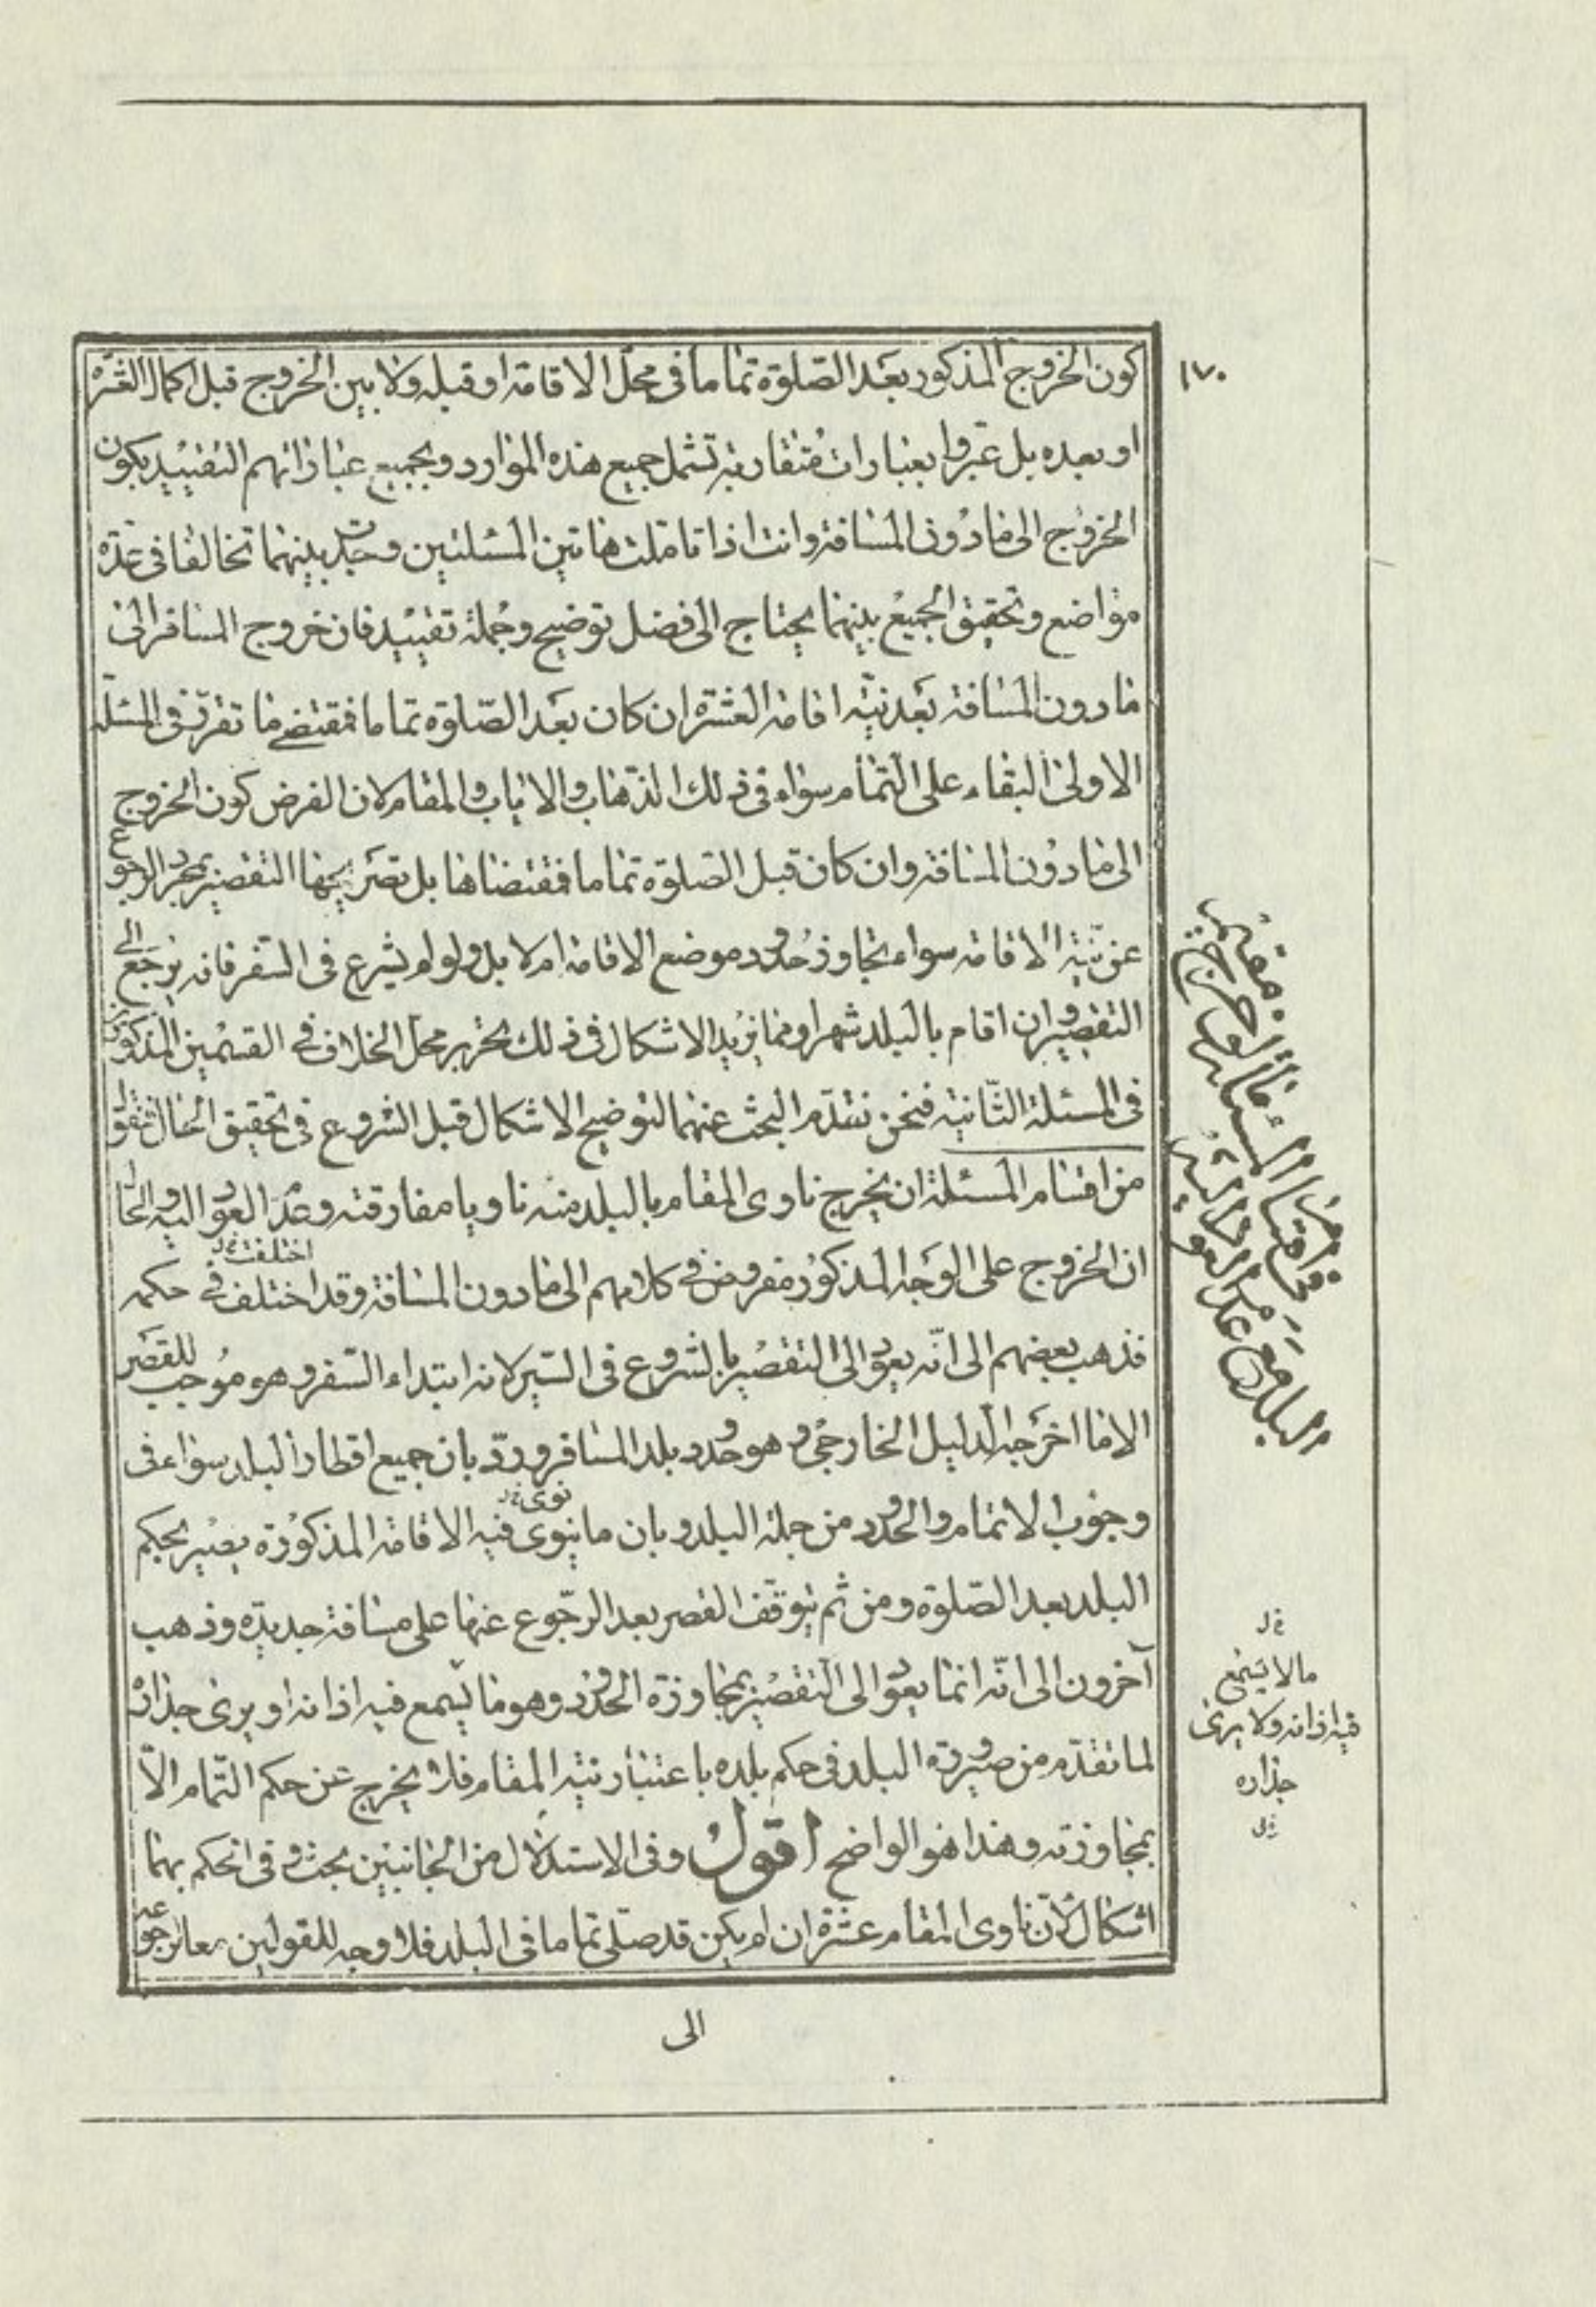 ١٧٠
كون الخروج المذكور بعد الصّلوة تماما فى محلّ الاقامة او قبله ولا بين الخروج قبل اكمال العشرة
او بعده بل عبّروا بعبارات متقاربة تشمل جميع هذه الموارد وبجميع عباراتهم التقييد بكون
الخروج الى ما دون المسافة وانت اذا تاملت هاتين المسئلتين وجدت بينهما تخالفا فى عدّة
مواضع وتحقيق الجميع بينهما يحتاج الى فضل توضيح وجملة تقييد فان خروج المسافر الى
ما دون المسافة بعد نيّة اقامة العشرة ان كان بعد الصّلوة تماما فمقتضى ما تقرّر فى المسئلة
الاولى البقاء على التمام سواء فى ذلك الذّهاب والاياب والمقام لان الفرض كون الخروج
الى ما دون المسافة وان كان قبل الصّلوة تماما فمقتضاها بل تصريحها التقصير بمجرد الرجوع
عن نيّة الاقامة سواء تجاوز حدود موضع الاقامة ام لا بل ولو لم يشرع فى السّفر فانه يرجع الى
التقصير وان اقام بالبلد شهرا ومما يزيد الاشكال فى ذلك تحرير محلّ الخلاف فى القسمين المذكورين
فى المسئلة الثّانية فنحن نقدّم البحث عنهما لتوضيح الاشكال قبل الشروع فى تحقيق الحال فنقول
من اقسام المسئلة ان يخرج ناوى المقام بالبلد منه ناويا مفارقته وعدم العود اليه والحال
ان الخروج على الوجه المذكور مفروض فى كلامهم الى ما دون المسافة وقد اختلف فى حكمه
اختلفت خ ل
فذهب بعضهم الى انّه يعود الى التقصير بالشروع فى السّير لانه ابتداء السّفر وهو موجب للقصر
الا ما اخرجه الدليل الخارجى وهو حدود بلد المسافر وردّ بان جميع اقطار البلد سواء فى
وجوب الاتمام والحدود من جملة البلد وبان ما ينوى فيه الاقامة المذكورة يصير بحكم
نوى خ ل
البلد بعد الصّلوة ومن ثم يتوقّف القصر بعد الرجوع عنها على مسافة جديدة وذهب
آخرون الى انّه انما يعود الى التقصير بمجاوزة الحدود وهو ما يسمع فيه اذانه او يرى جدرانه
لما تقدّم من صيرورة البلد فى حكم بلده باعتبار نيّة المقام فلا يخرج عن حكم التّمام الاّ
بمجاوزته وهذا هو الواضح اقول وفى الاستدلال من الجانبين بحث وفى الحكم بهما
اشكال لانّ ناوى المقام عشرة ان لم يكن قد صلّى تماما فى البلد فلا وجه للقولين معا لرجوعه
الى
خ ل
مالا يسمع
فيه اذانه ولا يرى
جداره
خ ل